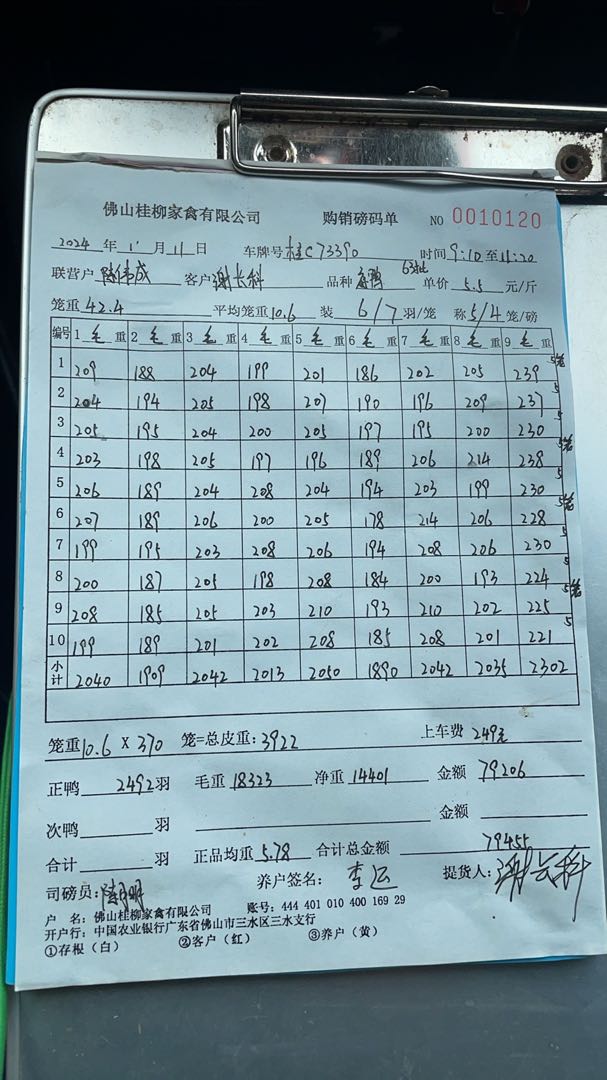 佛山桂柳家禽有限公司 购销磅码单 NO 0010120
2024 年 11 月 11 日 车牌号 桂C73390 时间 9:10 至 11:20
联营户 陈伟成 客户 谢长科 品种 鸭 63批 单价 5.5 元/斤
笼重 42.4 平均笼重 10.6 装 6/7 羽/笼 称 5/4 笼/磅
编号 1 毛 重 2 毛 重 3 毛 重 4 毛 重 5 毛 重 6 毛 重 7 毛 重 8 毛 重 9 毛 重
1 209 188 204 199 201 186 202 205 239 5笼
2 204 194 205 198 207 190 196 209 237 5
3 205 195 204 200 205 197 195 200 230 5
4 203 198 205 197 196 189 206 214 238 5笼
5 206 189 204 208 204 194 203 199 230 5
6 207 189 206 200 205 178 214 206 228 5笼
7 199 195 203 208 206 194 208 206 230 5
8 200 187 205 198 208 184 200 193 224 5
9 208 185 205 203 210 193 210 202 225 5笼
10 199 189 201 202 208 185 208 201 221 5
小计 2040 1909 2042 2013 2050 1890 2042 2035 2302
笼重 10.6 X 370 笼=总皮重: 3922 上车费 249元
正鸭 2492 羽 毛重 18323 净重 14401 金额 79206
次鸭 羽 金额
合计 羽 正品均重 5.78 合计总金额 79455
司磅员: 养户签名: 李运 提货人: 谢长科
户 名: 佛山桂柳家禽有限公司 账号: 444 401 010 400 169 29
开户行: 中国农业银行广东省佛山市三水区三水支行
①存根（白） ②客户（红） ③养户（黄）